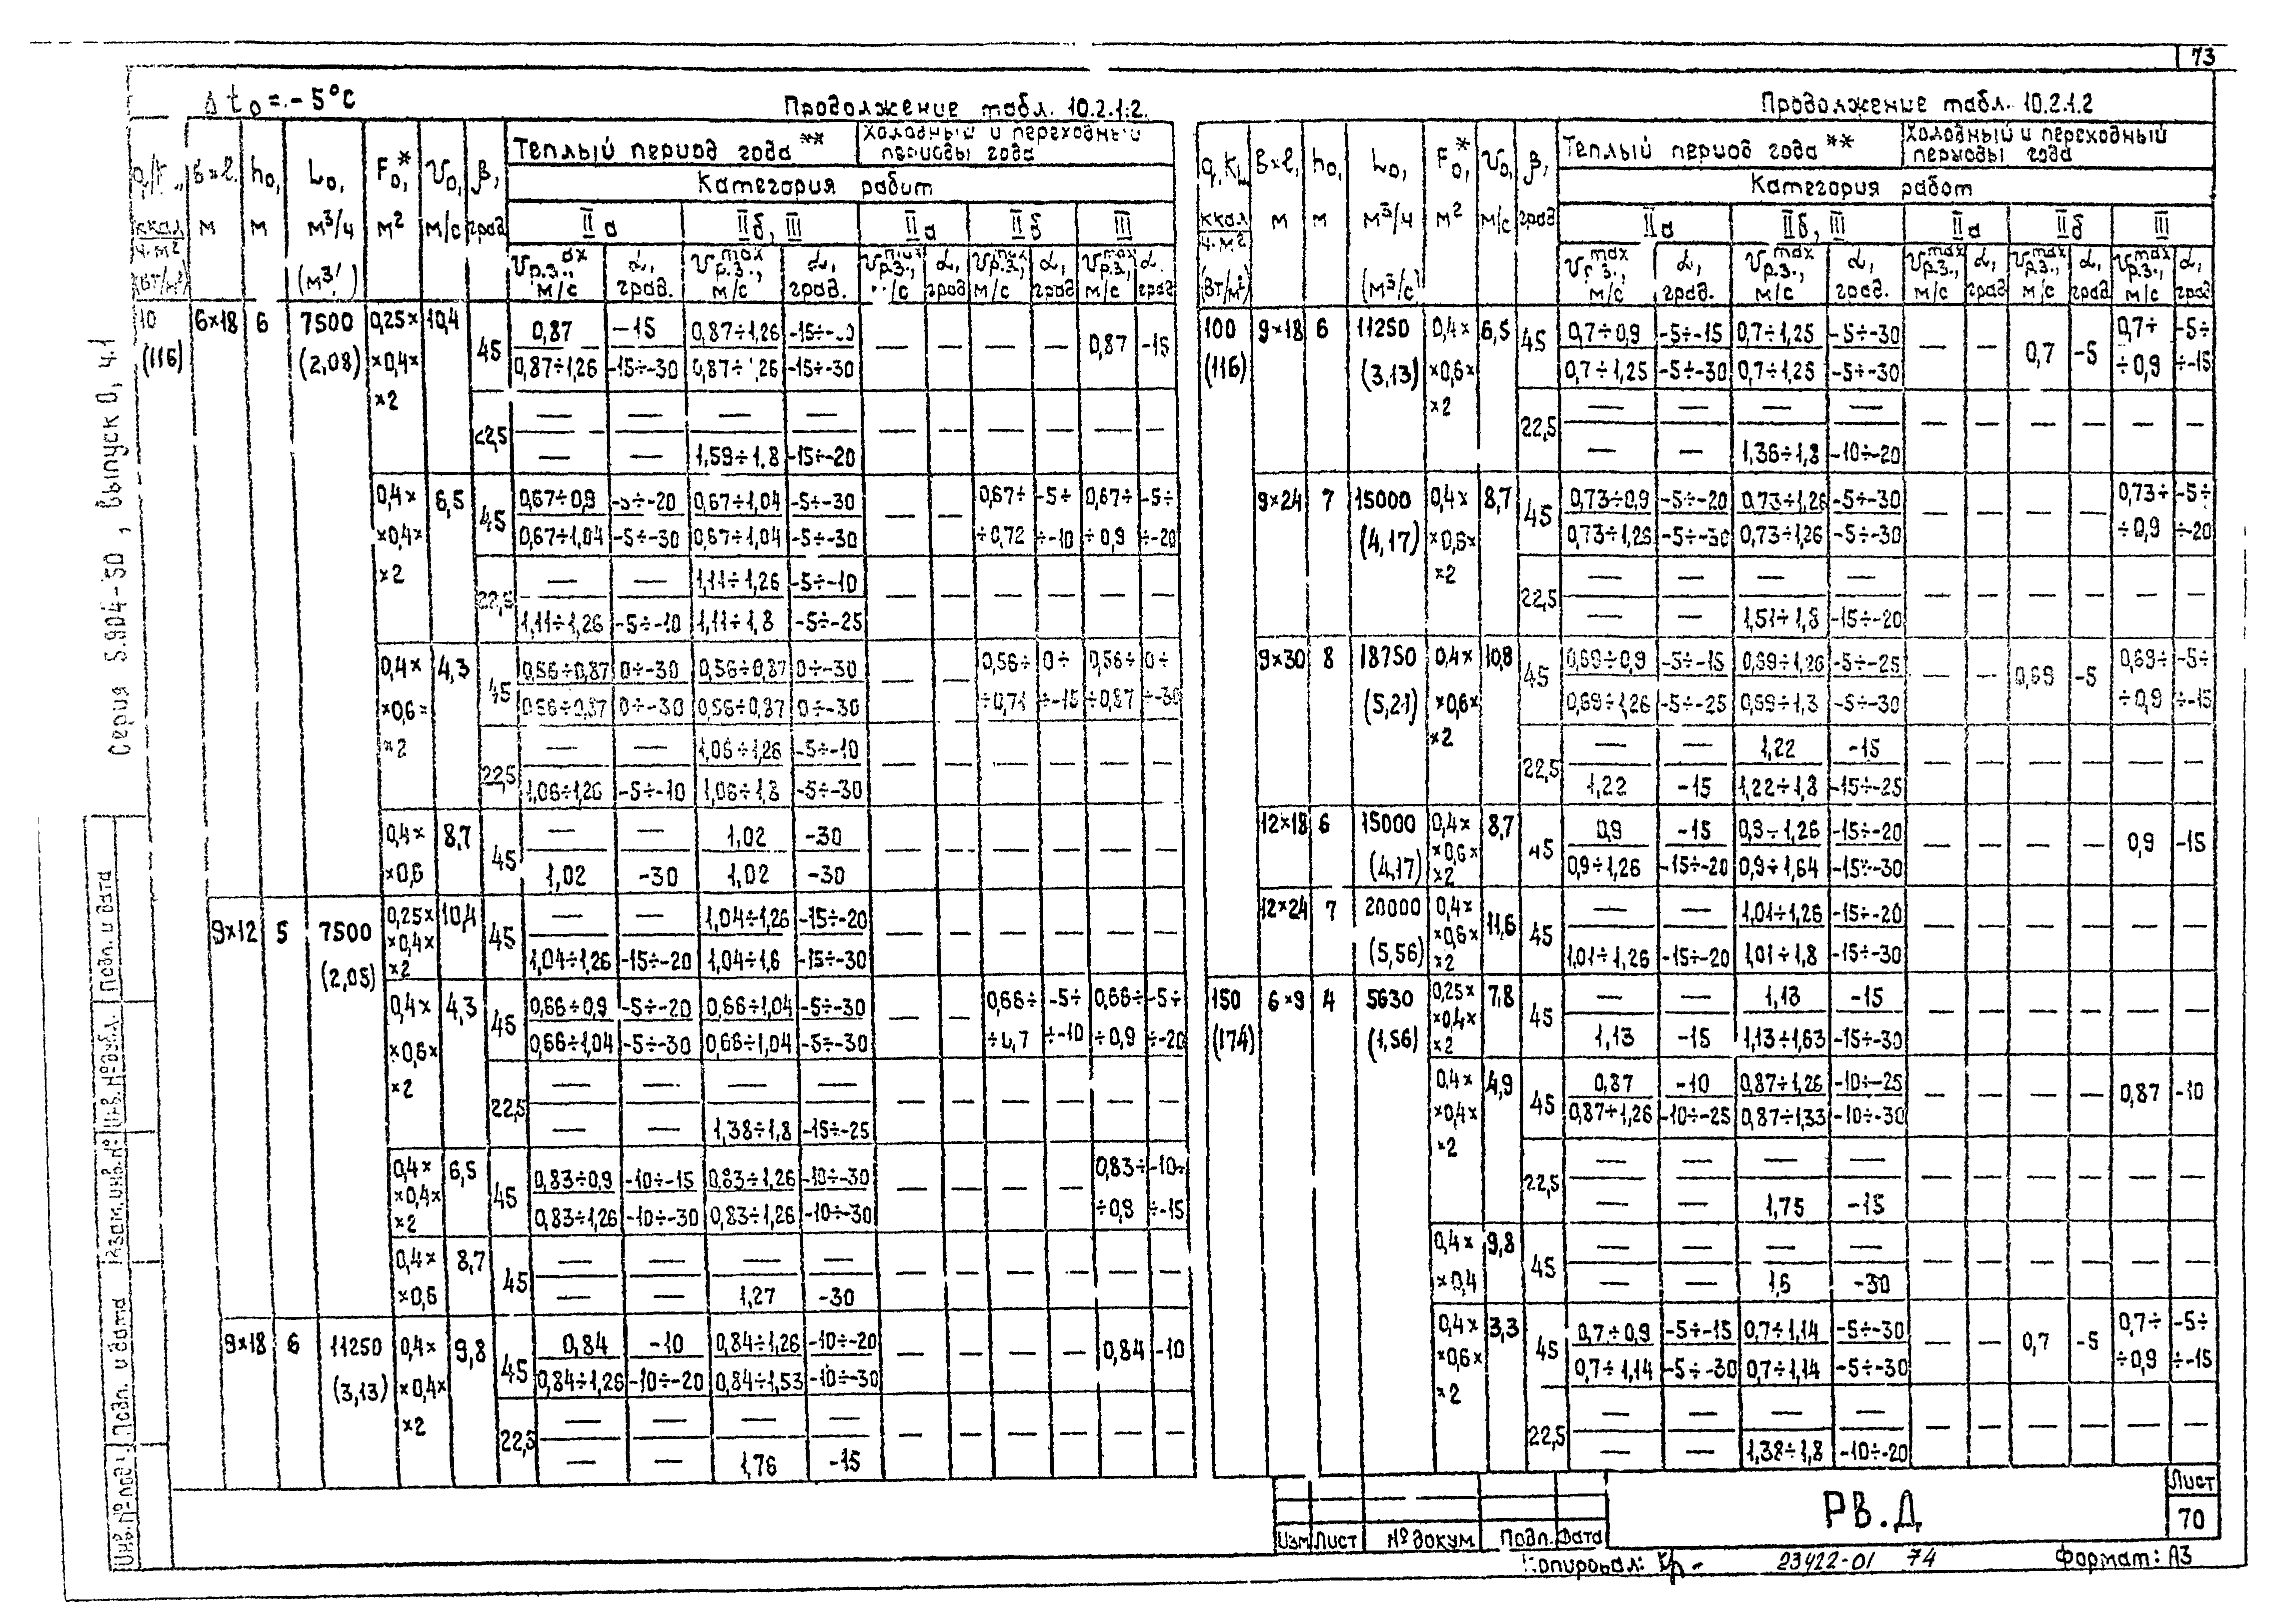 73
Δ t₀ = - 5°C
Продолжение табл. 10.2.1.2.
Теплый период года **
Холодный и переходный периоды года
Категория работ
в×l, м
h₀, м
L₀, м³/ч
F₀*, м²
υ₀, м/с
β, град
IIа
IIб, III
IIа
IIб
III
10 (116) 6×18 6 7500 (2,08) 0,25× ×0,4× ×2 10,4 45
0,87 -15 0,87÷1,26 — — — — 0,87 -15
0,87÷1,26 -15÷-30 -15÷-30
— — — —
— — 1,59÷1,8 -15÷-20
0,4× ×0,4× ×2 6,5 45
0,67÷0,9 -5÷-20 0,67÷1,04 -5÷-30 — — 0,67÷ ÷0,72 -5÷ ÷-10 0,67÷ ÷0,9 -5÷ ÷-20
0,67÷1,04 -5÷-30 0,67÷1,04 -5÷-30
22,5
— — 1,11÷1,26 -5÷-10 — — — — — —
1,11÷1,26 -5÷-10 1,11÷1,8 -5÷-25
0,4× ×0,6× ×2 4,3 45
0,56÷0,87 0÷-30 0,56÷0,87 0÷-30 — — 0,56÷ ÷0,71 0÷ ÷-15 0,56÷ ÷0,87 0÷ ÷-30
0,56÷0,87 0÷-30 0,56÷0,87 0÷-30
22,5
— — 1,06÷1,26 -5÷-10 — — — — — —
1,06÷1,26 -5÷-10 1,06÷1,8 -5÷-30
0,4× ×0,6 8,7 45
— — 1,02 -30 — — — — — —
1,02 -30 1,02 -30
9×12 5 7500 0,25× ×0,4× ×2 10,4 45
— — 1,04÷1,26 -15÷-20 — — — — — —
1,04÷1,26 -15÷-20 1,04÷1,6 -15÷-30
0,4× ×0,6× ×2 4,3 45
0,66÷0,9 -5÷-20 0,66÷1,04 -5÷-30 — — 0,66÷ -5÷ ÷-10 0,66÷ ÷0,9 -5÷ ÷-20
0,66÷1,04 -5÷-30 0,66÷1,04 -5÷-30
22,5
— — — — — — — — — —
— — 1,38÷1,8 -15÷-25
0,4× ×0,4× ×2 6,5 45
0,83÷0,9 -10÷-15 0,83÷1,26 -10÷-30 — — — — 0,83÷ ÷0,9 -10÷ ÷-15
0,83÷1,26 -10÷-30 0,83÷1,26 -10÷-30
0,4× ×0,6 8,7 45
— — — — — — — — — —
— — 1,27 -30
9×18 6 11250 (3,13) 0,4× ×0,4× ×2 9,8 45
0,84 -10 0,84÷1,26 -10÷-20 — — — — 0,84 -10
0,84÷1,26 -10÷-20 0,84÷1,53 -10÷-30
22,5
— — — — — — — — — —
— — 1,76 -15
Продолжение табл. 10.2.1.2
Теплый период года **
Холодный и переходный периоды года
Категория работ
ккал/ч.м² (вт/м²)
в×l, м
h₀, м
L₀, м³/ч (м³/с)
F₀*, м²
υ₀, м/с
β, град
IIа
IIб, III
IIа
IIб
III
υр.з.max, м/с
α, град.
100 (116) 9×18 6 11250 (3,13) 0,4× ×0,6× ×2 6,5 45
0,7÷0,9 -5÷-15 0,7÷1,25 -5÷-30 — — 0,7 -5 0,7÷ ÷0,9 -5÷ ÷-15
0,7÷1,25 -5÷-30 0,7÷1,25 -5÷-30
22,5
— — — — — — — — — —
— — 1,36÷1,8 -10÷-20
9×24 7 15000 (4,17) 0,4× ×0,6× ×2 8,7 45
0,73÷0,9 -5÷-20 0,73÷1,26 -5÷-30 — — — — 0,73÷ ÷0,9 -5÷ ÷-20
0,73÷1,26 -5÷-30 0,73÷1,26 -5÷-30
22,5
— — — — — — — — — —
— — 1,51÷1,8 -15÷-20
9×30 8 18750 (5,21) 0,4× ×0,6× ×2 10,8 45
0,69÷0,9 -5÷-15 0,69÷1,26 -5÷-25 — — 0,69 -5 0,69÷ ÷0,9 -5÷ ÷-15
0,69÷1,26 -5÷-25 0,69÷1,3 -5÷-30
22,5
— — 1,22 -15 — — — — — —
1,22 -15 1,22÷1,8 -15÷-25
12×18 6 15000 (4,17) 0,4× ×0,6× ×2 8,7 45
0,9 -15 0,9÷1,26 -15÷-20 — — — — 0,9 -15
0,9÷1,26 -15÷-20 0,9÷1,64 -15÷-30
12×24 7 20000 (5,56) 0,4× ×0,6× ×2 11,6 45
— — 1,01÷1,26 -15÷-20 — — — — — —
1,01÷1,26 -15÷-20 1,01÷1,8 -15÷-30
150 (174) 6×9 4 5630 (1,56) 0,25× ×0,4× ×2 7,8 45
— — 1,13 -15 — — — — — —
1,13 -15 1,13÷1,63 -15÷-30
0,4× ×0,4× ×2 4,9 45
0,87 -10 0,87÷1,26 -10÷-25 — — — — 0,87 -10
0,87÷1,26 -10÷-25 0,87÷1,33 -10÷-30
22,5
— — — — — — — — — —
— — 1,75 -15
0,4× ×0,4 9,8 45
— — — — — — — — — —
— — 1,6 -30
0,4× ×0,6× ×2 3,3 45
0,7÷0,9 -5÷-15 0,7÷1,14 -5÷-30 — — 0,7 -5 0,7÷ ÷0,9 -5÷ ÷-15
0,7÷1,14 -5÷-30 0,7÷1,14 -5÷-30
22,5
— — — — — — — — — —
— — 1,38÷1,8 -10÷-20
Серия 5.904-50, выпуск 0, ч.1
Подл. и дата
Инв. № дубл.
Взам. инв. №
Подл. и дата
Инв. № подл
Изм Лист № докум Подл. Дата
РВ.Д
Лист
70
Копировал:
23422-01 74
Формат: А3